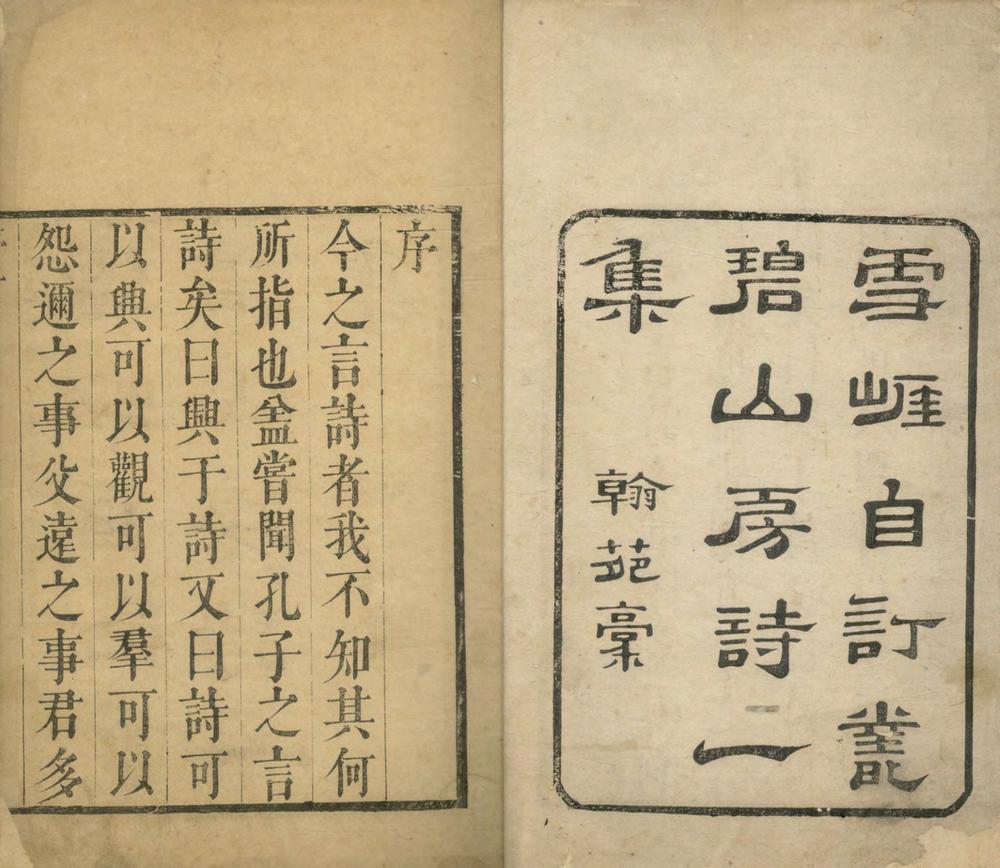 雪崕自訂叢
碧山房詩一
集
翰苑稾
序
今之言詩者我不知其何
所指也盇嘗聞孔子之言
詩矣曰興于詩又曰詩可
以典可以觀可以羣可以
怨邇之事父遠之事君多